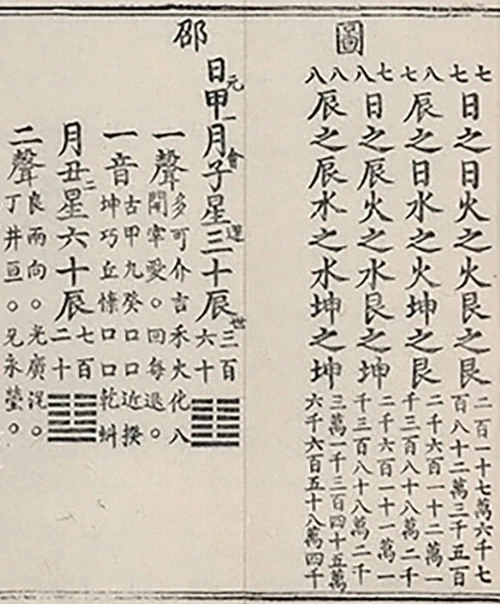 圖
七七日之日火之火艮之艮
二百一十七萬六千七
百八十二萬三千五百
八七辰之日水之火坤之艮
二千六百一十二萬一
千三百八十八萬二千
七八日之辰火之水艮之坤
二千六百一十一萬一
千三百八十八萬二千
八八辰之辰水之水坤之坤
三萬一千三百四十五萬
六千六百五十八萬四千
邵
元會運世
日甲一月子星三十辰三百六十
一聲
多可介吉禾火化八
開宰愛○回每退○
一音
古甲九癸□□近揆
坤巧丘□□乾
月丑二星六十辰七百二十
二聲
良兩向○光廣況○
丁井亘○兄永瑩○